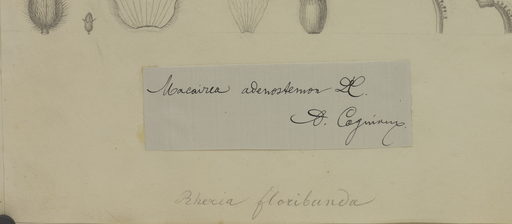 Macairea adenostemon DC.
A. Cogniaux.
Rhexia floribunda